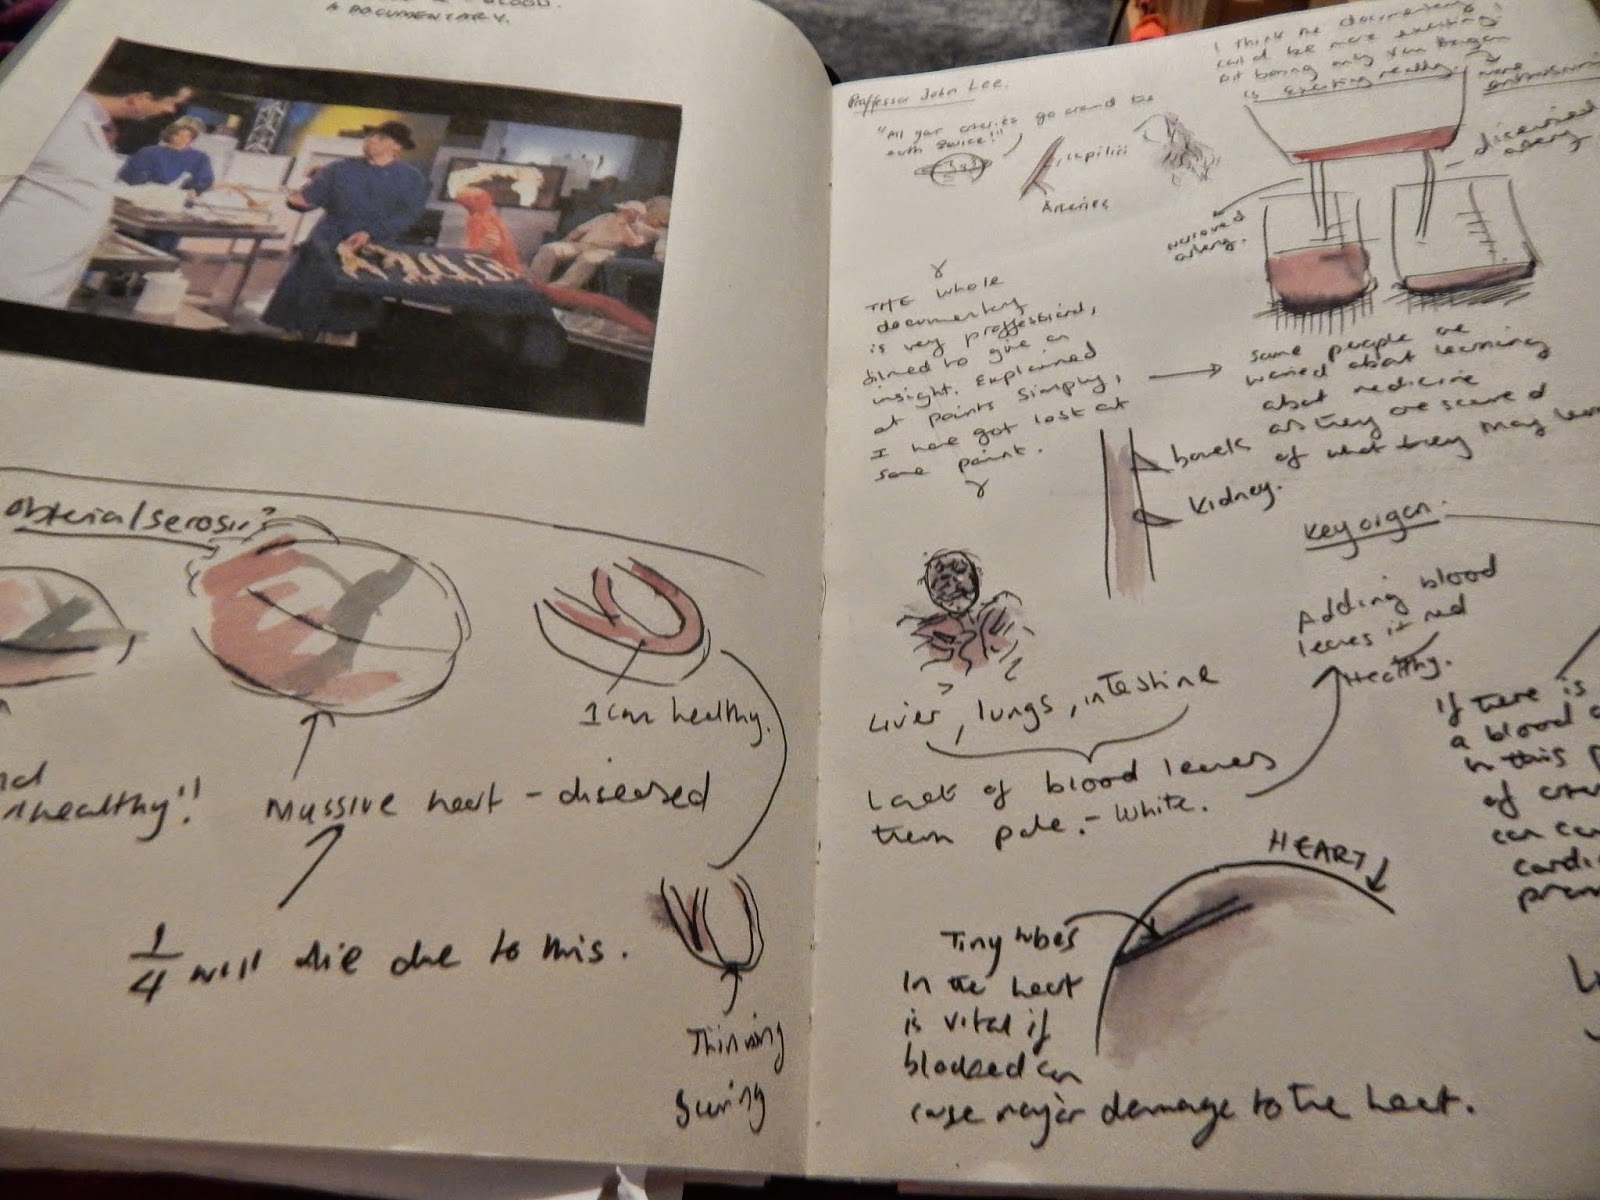 BLOOD.
A DOCUMENTARY.
1 cm healthy.
Massive heart - diseased
1/4 will die due to this.
Thinning
Proffessor John Lee.
"All your arteries go around the
Arteries
I think the documentary
diseased
artery
narrowed
artery.
THE whole
documentary
is very proffessional,
filmed to give an
insight. Explained
at points simply,
I have got lost at
some point.
some people are
worried about learning
about medicine
as they are scared
of what they may learn
bowels
kidney.
Key organ.
Adding blood
leaves it red
Healthy.
Liver, lungs, intestine
Lack of blood leaves
them pale. - White.
If there is
a blood
in this
of
can
cardi
HEART
Tiny tubes
in the heart
is vital if
blocked can
cause major damage to the heart.